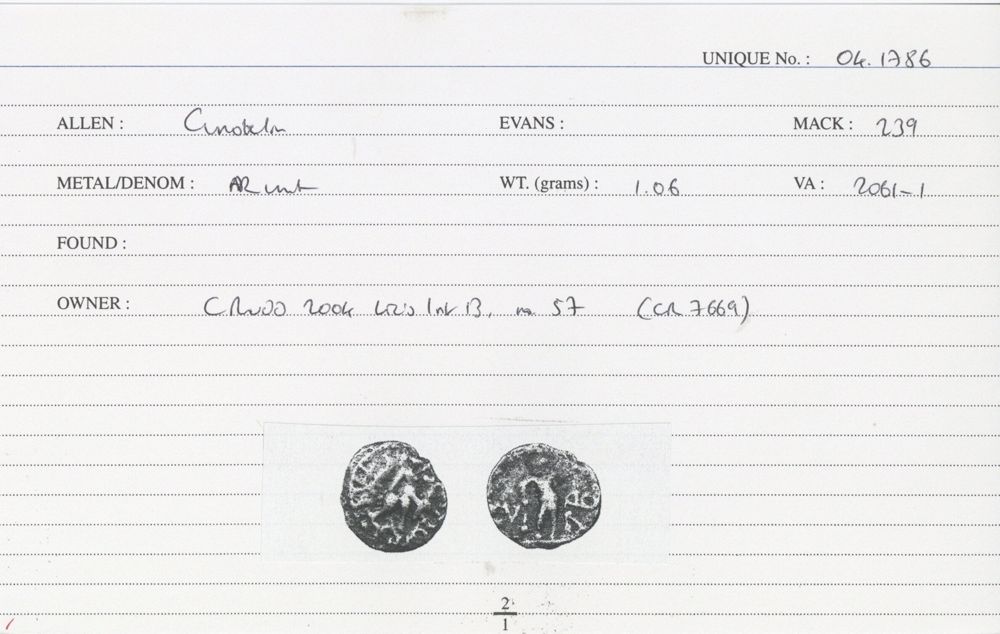 UNIQUE No. : 04.1786
ALLEN : Cunobelin EVANS : MACK : 239
METAL/DENOM : AR unit WT. (grams) : 1.06 VA : 2061-1
FOUND :
OWNER : C Rudd 2004 List 13, no. 57 (CR 7669)
2
1